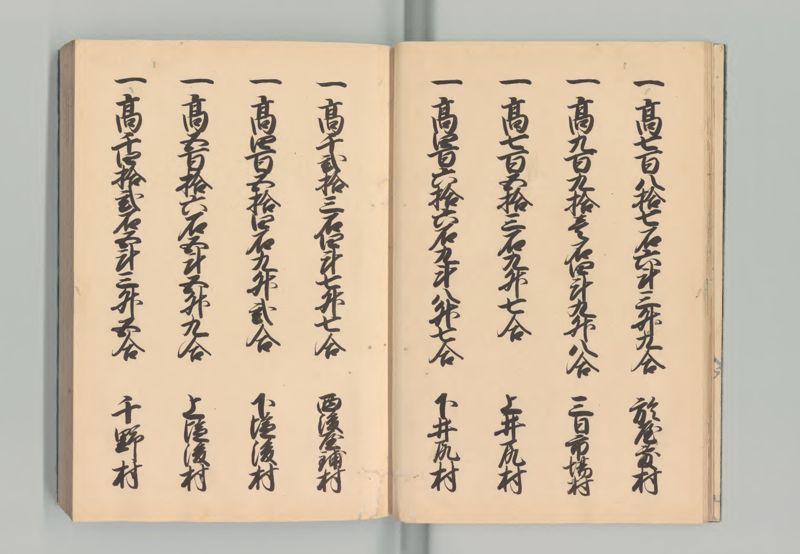 一 髙七百八拾七石六斗三升九合 於屋敷村
一 髙九百九拾壱石四斗九升八合 三日市場村
一 髙七百五拾三石九升七合 上井尻村
一 髙四百六拾六石九斗八升七合 下井尻村
一 髙千弐拾三石四斗七升七合 西後屋鋪村
一 髙四百五拾四石九升弐合 下塩後村
一 髙五百拾六石五斗五升九合 上塩後村
一 髙千四拾弐石五斗三升五合 千野村